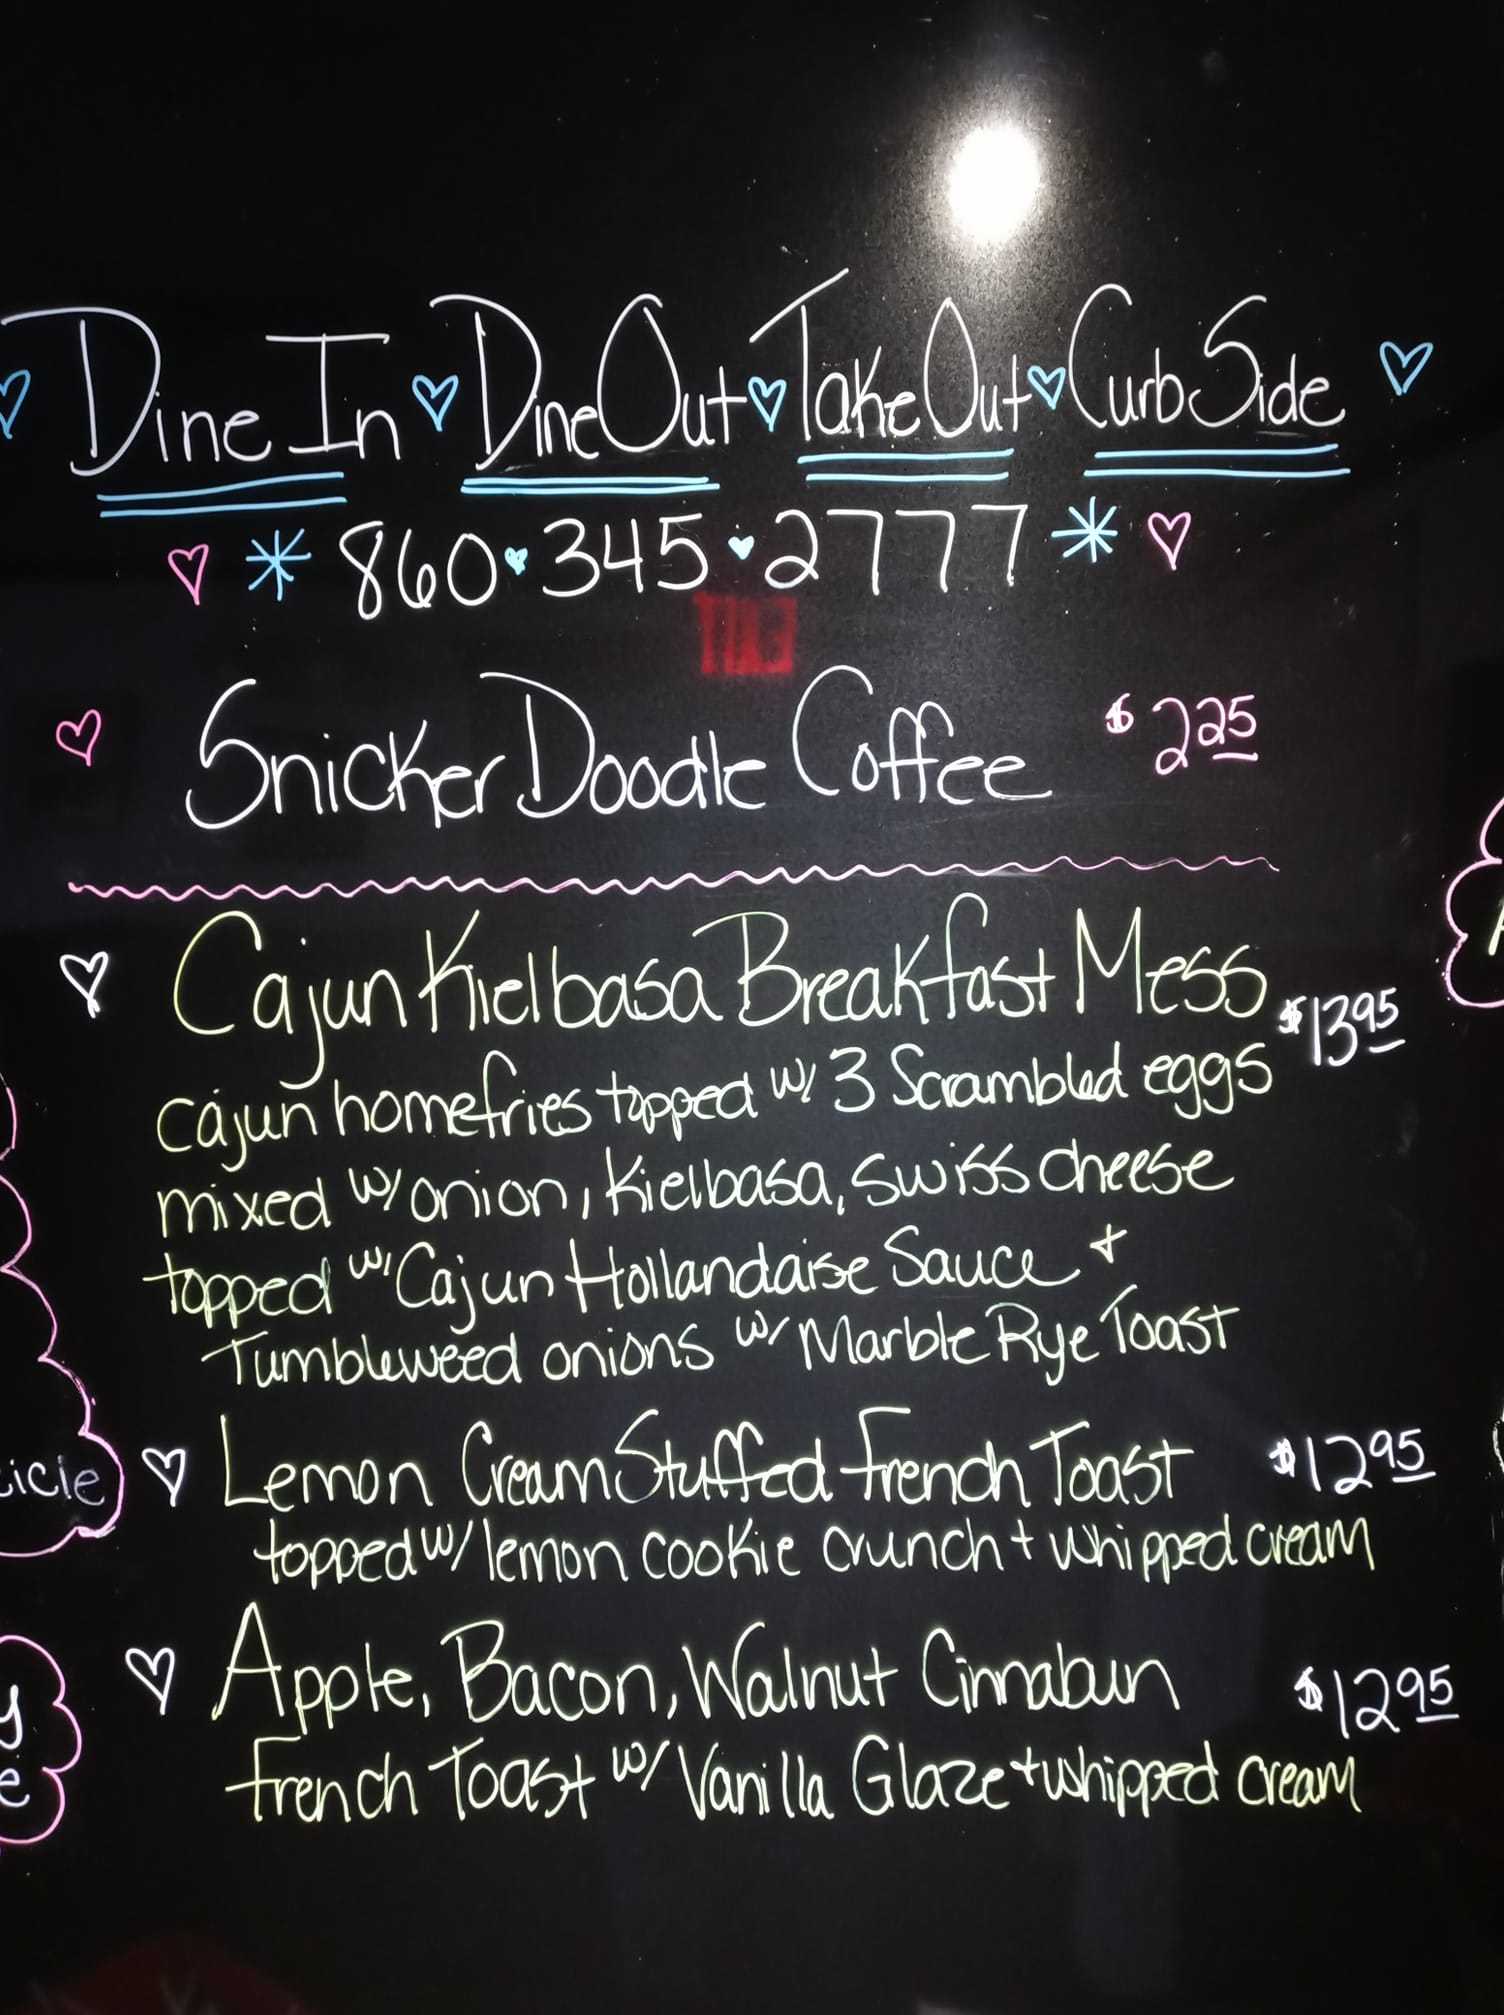 Dine In Dine Out Take Out Curb Side
860 345 2777
Snicker Doodle Coffee $2.25
Cajun Kielbasa Breakfast Mess $13.95
cajun homefries topped w/ 3 Scrambled eggs
mixed w/ onion, Kielbasa, swiss cheese
topped w/ Cajun Hollandaise Sauce +
Tumbleweed onions w/ Marble Rye Toast
Lemon Cream Stuffed French Toast $12.95
topped w/ lemon cookie crunch + whipped cream
Apple, Bacon, Walnut Cinnabun $12.95
French Toast w/ Vanilla Glaze + whipped cream